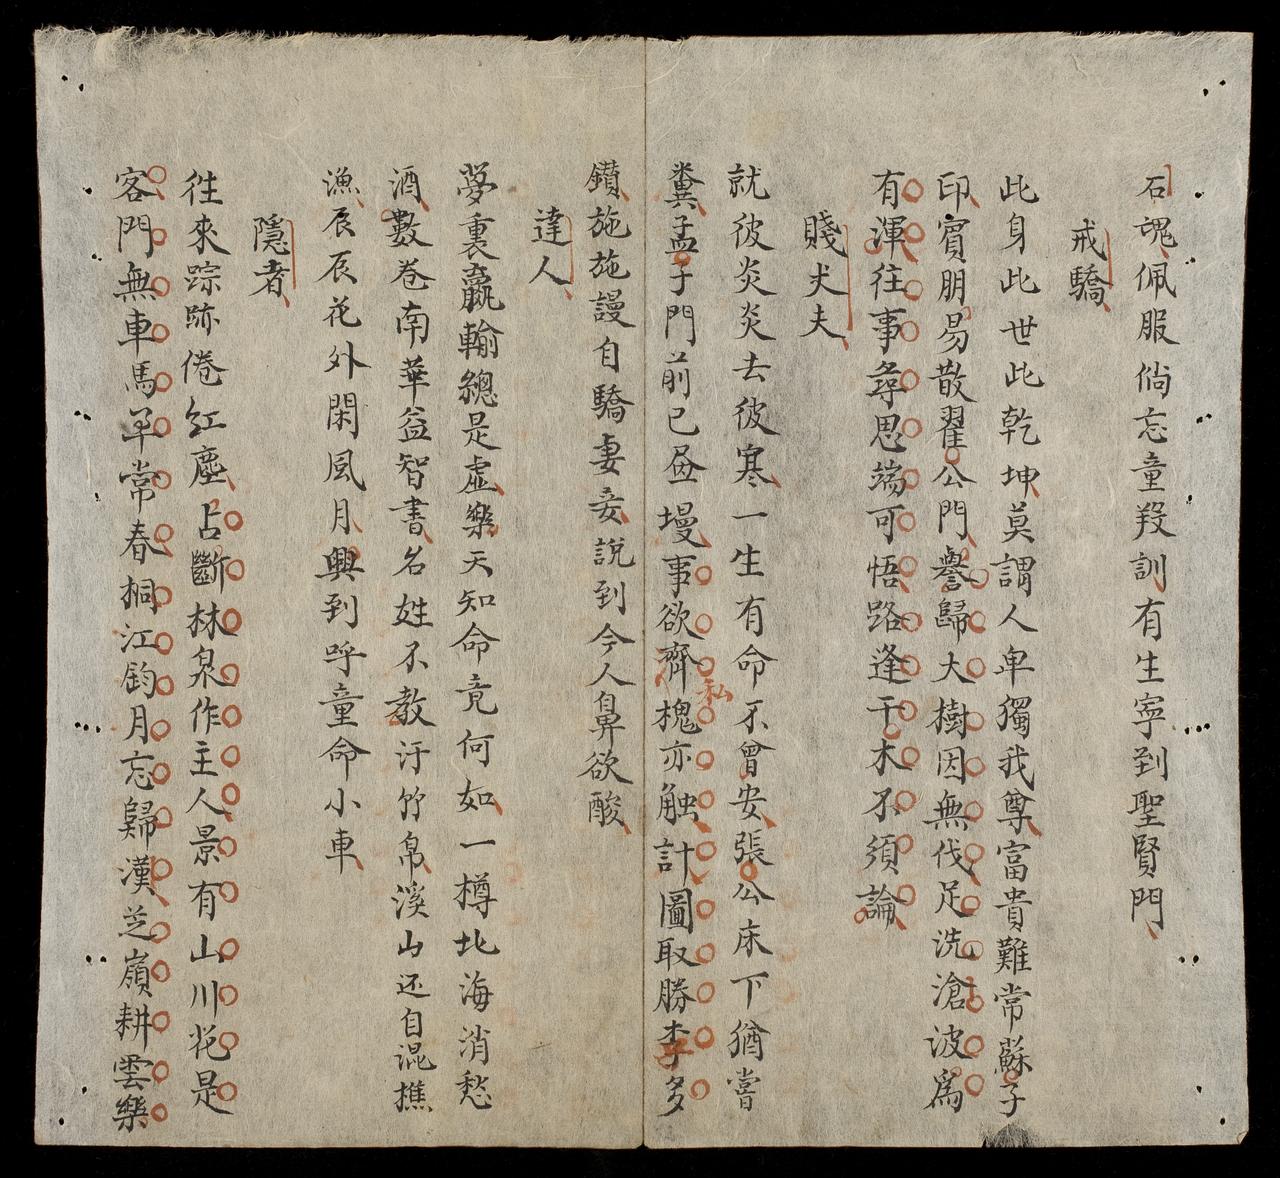 石魂佩服倘忘童羖訓有生寧到聖賢門
戒驕
此身此世此乾坤莫謂人卑獨我尊富貴難常蘇子
印賓朋易散翟公門譽歸大樹因無伐足洗滄波爲
有渾往事尋思端可悟路逢干木不須論
賤丈夫
就彼炎炎去彼寒一生有命不曾安張公床下猶嘗
糞孟子門前已 墁事欲齊 槐亦触計圖取勝李多
鑚施施謾自驕妻妾說到今人鼻欲酸
私
達人
夢裏贏輸總是虛樂天知命竟何如一樽北海消愁
酒數卷南華益智書名姓不教汙竹帛溪山还自混樵
漁辰辰花外閑風月興到呼童命小車
隱者
徃來踪跡倦紅塵占斷林泉作主人景有山川花是
客門無車馬草常春桐江釣月忘歸漢芝嶺耕雲樂